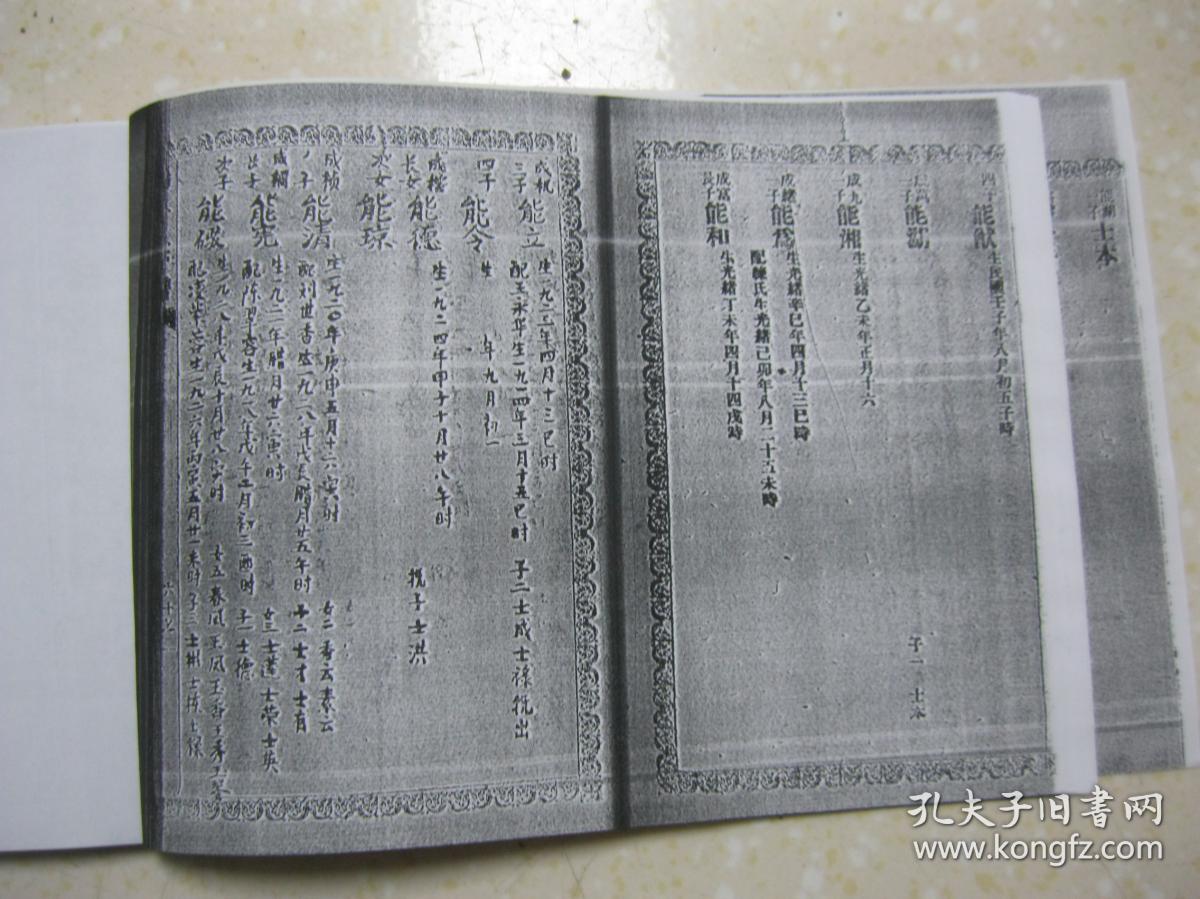 士本
四子 能猷 生民國壬子年八月初五子時
二子 能勛
成九
一子 能湘 生光緒乙未年正月十六
子一 士本
成緒
一子 能為 生光緒辛巳年四月十三巳時
配 氏生光緒己卯年八月二十五未時
成富
長子 能和 生光緒丁未年四月十四戌時
成祝
三子 能立 生一九二三年四月十三巳时
配王永华生一九一四年三月十五巳时 子二士成士禄
四子 能令 生 年九月初一
成楷
长女 能德 生一九二四年甲子十月廿八午时
桃子士洪
次女 能琼
成祯
能清 生一九二〇年庚申五月十六寅时 女二秀云素云
配刘世香生一九二八年戊辰腊月廿五午时 士才士有
长子 能宪 生一九一二年腊月廿六寅时 女三士莲士荣士英
配陈翠容生一九一八年戊午 月初三酉时 子一士德
次子 能破 生一九二八年戊辰十月廿八 时 女五春凤玉凤玉香玉秀玉琴
生一九二六年丙寅五月廿一未时 子三士彬
孔夫子旧书网
www.kongfz.com